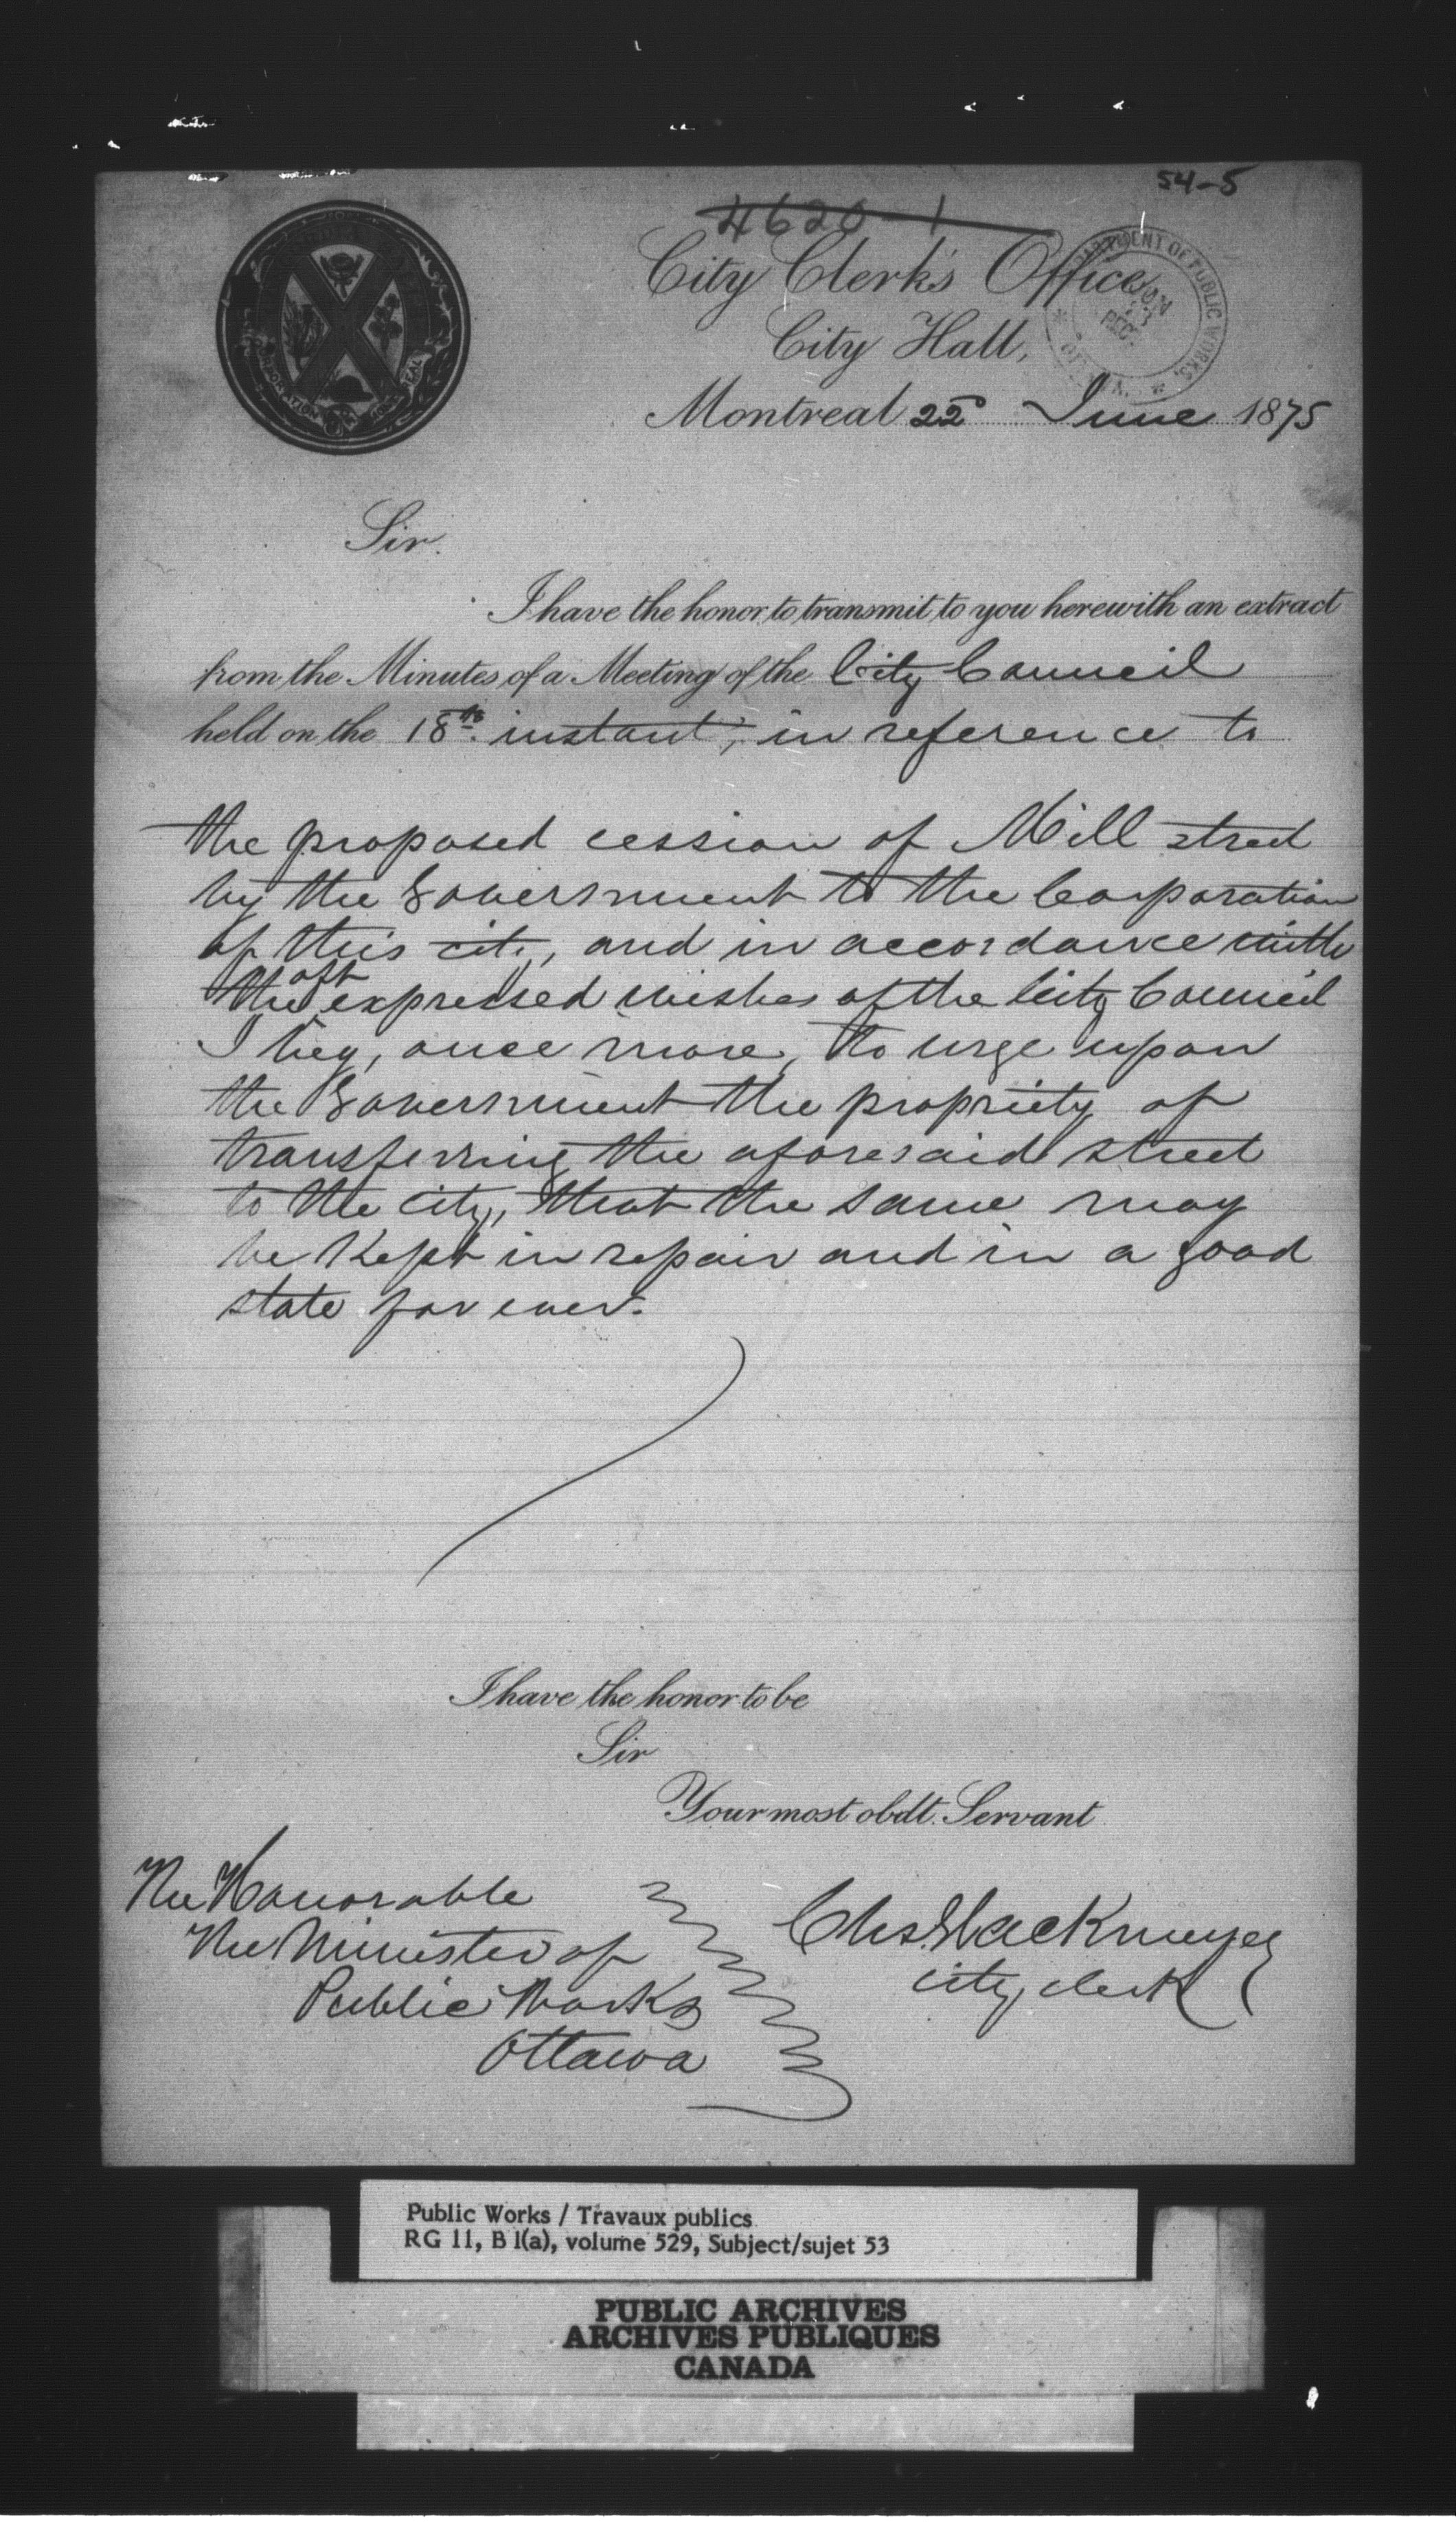 54-5
4620-1
City Clerk's Office
City Hall,
Montreal 22d June 1875
DEPARTMENT OF PUBLIC WORKS,
Sir.
I have the honor to transmit to you herewith an extract
from the Minutes of a Meeting of the City Council
held on the 18th. instant, in reference to
the proposed cession of Mill street
by the Government to the Corporation
of this city, and in accordance with
the oft expressed wishes of the City Council
I beg, once more, to urge upon
the Government the propriety of
transferring the aforesaid street
to the city, that the same may
be Kept in repair and in a good
state for ever.
I have the honor to be
Sir
Your most obdt. Servant
The Honorable
The Minister of
Public Works
Ottawa
Chs. Glackmeyer
City Clerk
Public Works / Travaux publics
RG 11, B 1(a), volume 529, Subject/sujet 53
PUBLIC ARCHIVES
ARCHIVES PUBLIQUES
CANADA